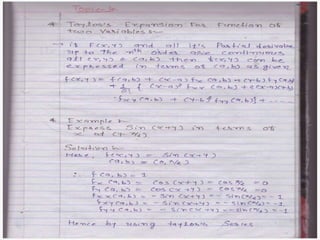 Topic:-
* Taylor's Expansion For Function of
two Variables:-
→ if F(x,y) and all it's Partial derivative
up to the nth order are continuous
all (x,y) & (a,b) then f(x,y) can be
expressed in terms of (a,b) as given
f(x,y) = f(a,b) + (x-a) fx (a,b) + (y-b) fy (a,b)
+ 1/2! { (x-a)² fxx (a,b) + (x-a)(y-b)
fxy (a,b) + (y-b)² fyy (a,b)} + ....
* Example:-
Express Sin (x+y) in terms of
x of (y-π/2)
Solution:-
Here, f(x,y) = Sin (x+y)
(a,b) = (0, π/2)
∴ f(a,b) = 1
fx (a,b) = cos (x+y) = cos π/2 = 0
fy (a,b) = cos (x+y) = cos π/2 = 0
fxx (a,b) = -Sin (x+y) = -Sin (π/2) = -1
fxy (a,b) = -Sin (x+y) = -Sin (π/2) = -1
fyy (a,b) = -Sin (x+y) = -Sin (π/2) = -1
Hence by using Taylor's Series